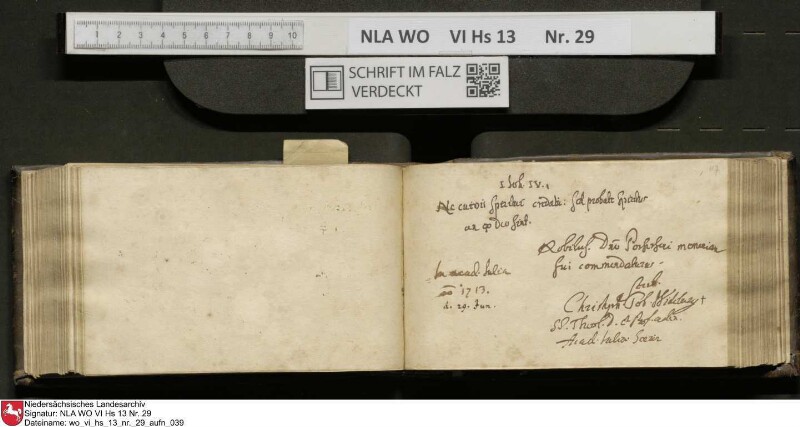 1 2 3 4 5 6 7 8 9 10
NLA WO VI Hs 13 Nr. 29
SCHRIFT IM FALZ
VERDECKT
1 Joh. IV.
Ne cuivis spiritui credite: sed probate spiritus
an ex Deo sint.
In acad. Julia
1713.
d. 29. Jun.
Nobiliss. Dno Possessori memoriam
sui commendaturus
scrib.
Christoph. Tob.
SS. Theol. D. & Prof.
Acad. Juliae
Niedersächsisches Landesarchiv
Signatur: NLA WO VI Hs 13 Nr. 29
Dateiname: wo_vi_hs_13_nr._29_aufn_039